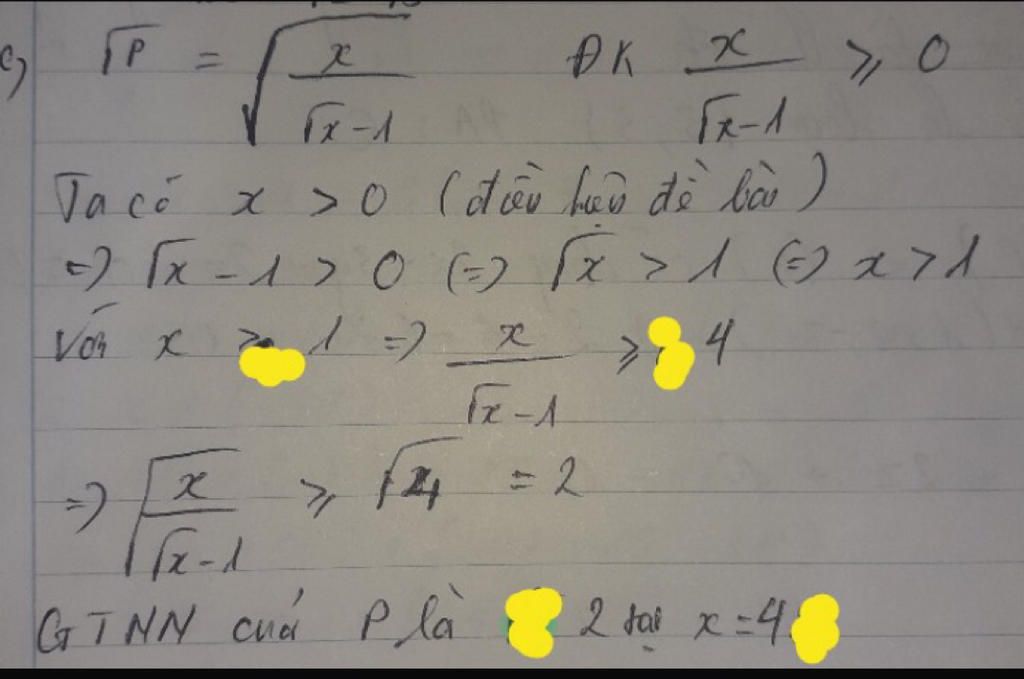 c) √P = √(x/(√x-1)) ĐK x/(√x-1) ≥ 0
Ta có x > 0 (điều kiện đề bài)
=) √x - 1 > 0 (=) √x > 1 (=) x > 1
Với x > 1 =) x/(√x-1) ≥ 4
=) √(x/(√x-1)) ≥ √4 = 2
GTNN củả P là 2 tại x = 4